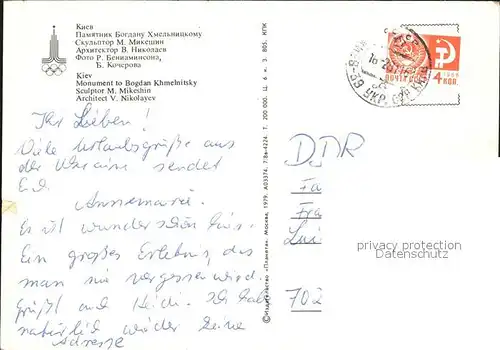 Киев
Памятник Богдану Хмельницкому
Скульптор М. Микешин
Архитектор В. Николаев
Фото Р. Бениаминсона,
Б. Кочерова
Kiev
Monument to Bogdan Khmelnitsky
Sculptor M. Mikeshin
Architect V. Nikolayev
Ihr Lieben!
Viele Urlaubsgrüße aus
der Ukraine sendet
Euch
Annemarie.
Es ist wunderschön hier.
Ein großes Erlebnis, das
man nie vergessen wird.
Grüßt auch Heidi. Ich habe
natürlich wieder keine
Adresse
© Издательство «Планета», Москва, 1979. А03374. 7-8а-4224. Т. 200 000. Ц. 6 к. З. 805. КПК
ПОЧТА СССР
1966
4 КОП
УКР. ССР
DDR
Fa
Fra
Lui
702
privacy protection
Datenschutz